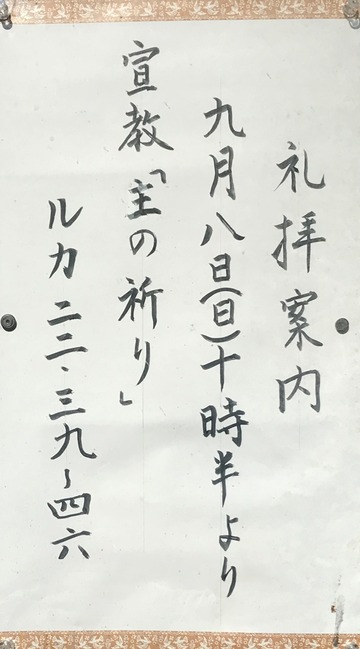 礼拝案内
九月八日(日)十時半より
宣教「主の祈り」
ルカ二二・三九〜四六